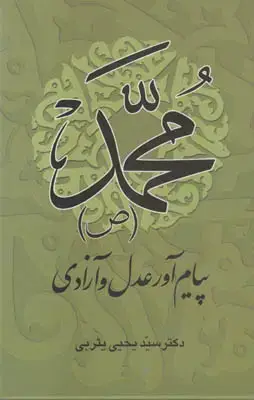 محمّد
(ص)
پیام‌آور عدل و آزادی
دکتر سیّد یحیی یثربی